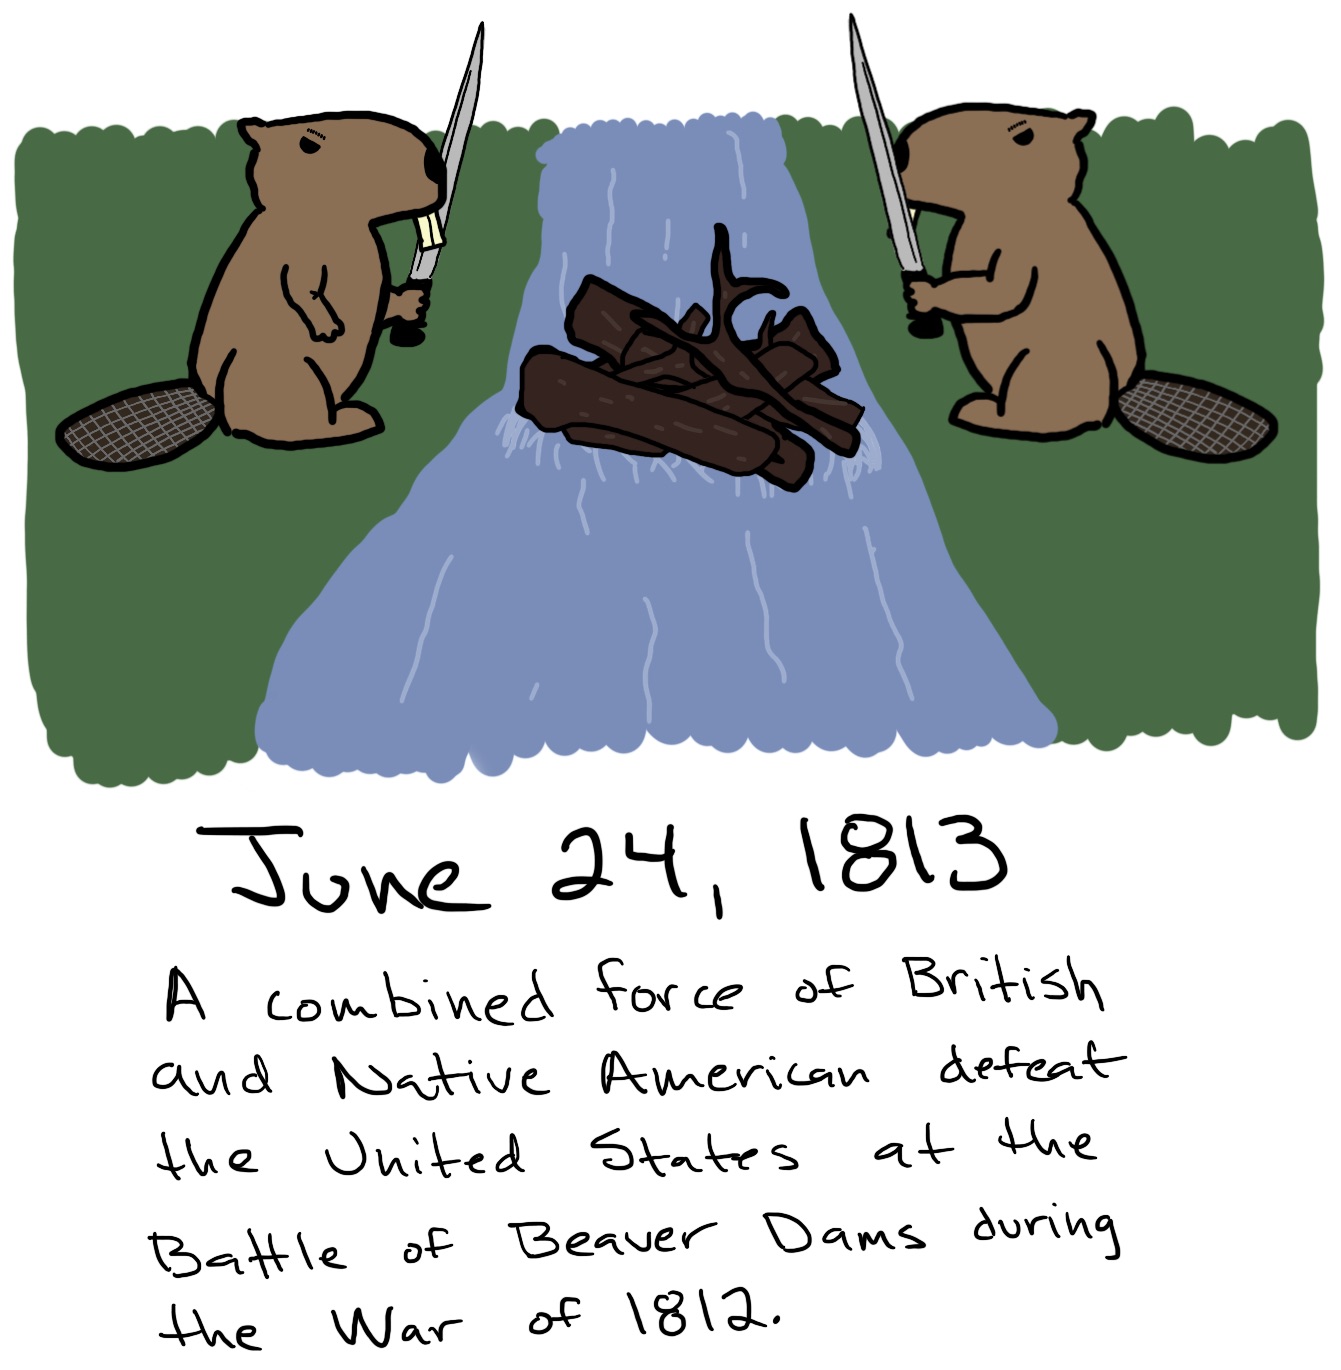 June 24, 1813
A combined force of British
and Native American defeat
the United States at the
Battle of Beaver Dams during
the War of 1812.